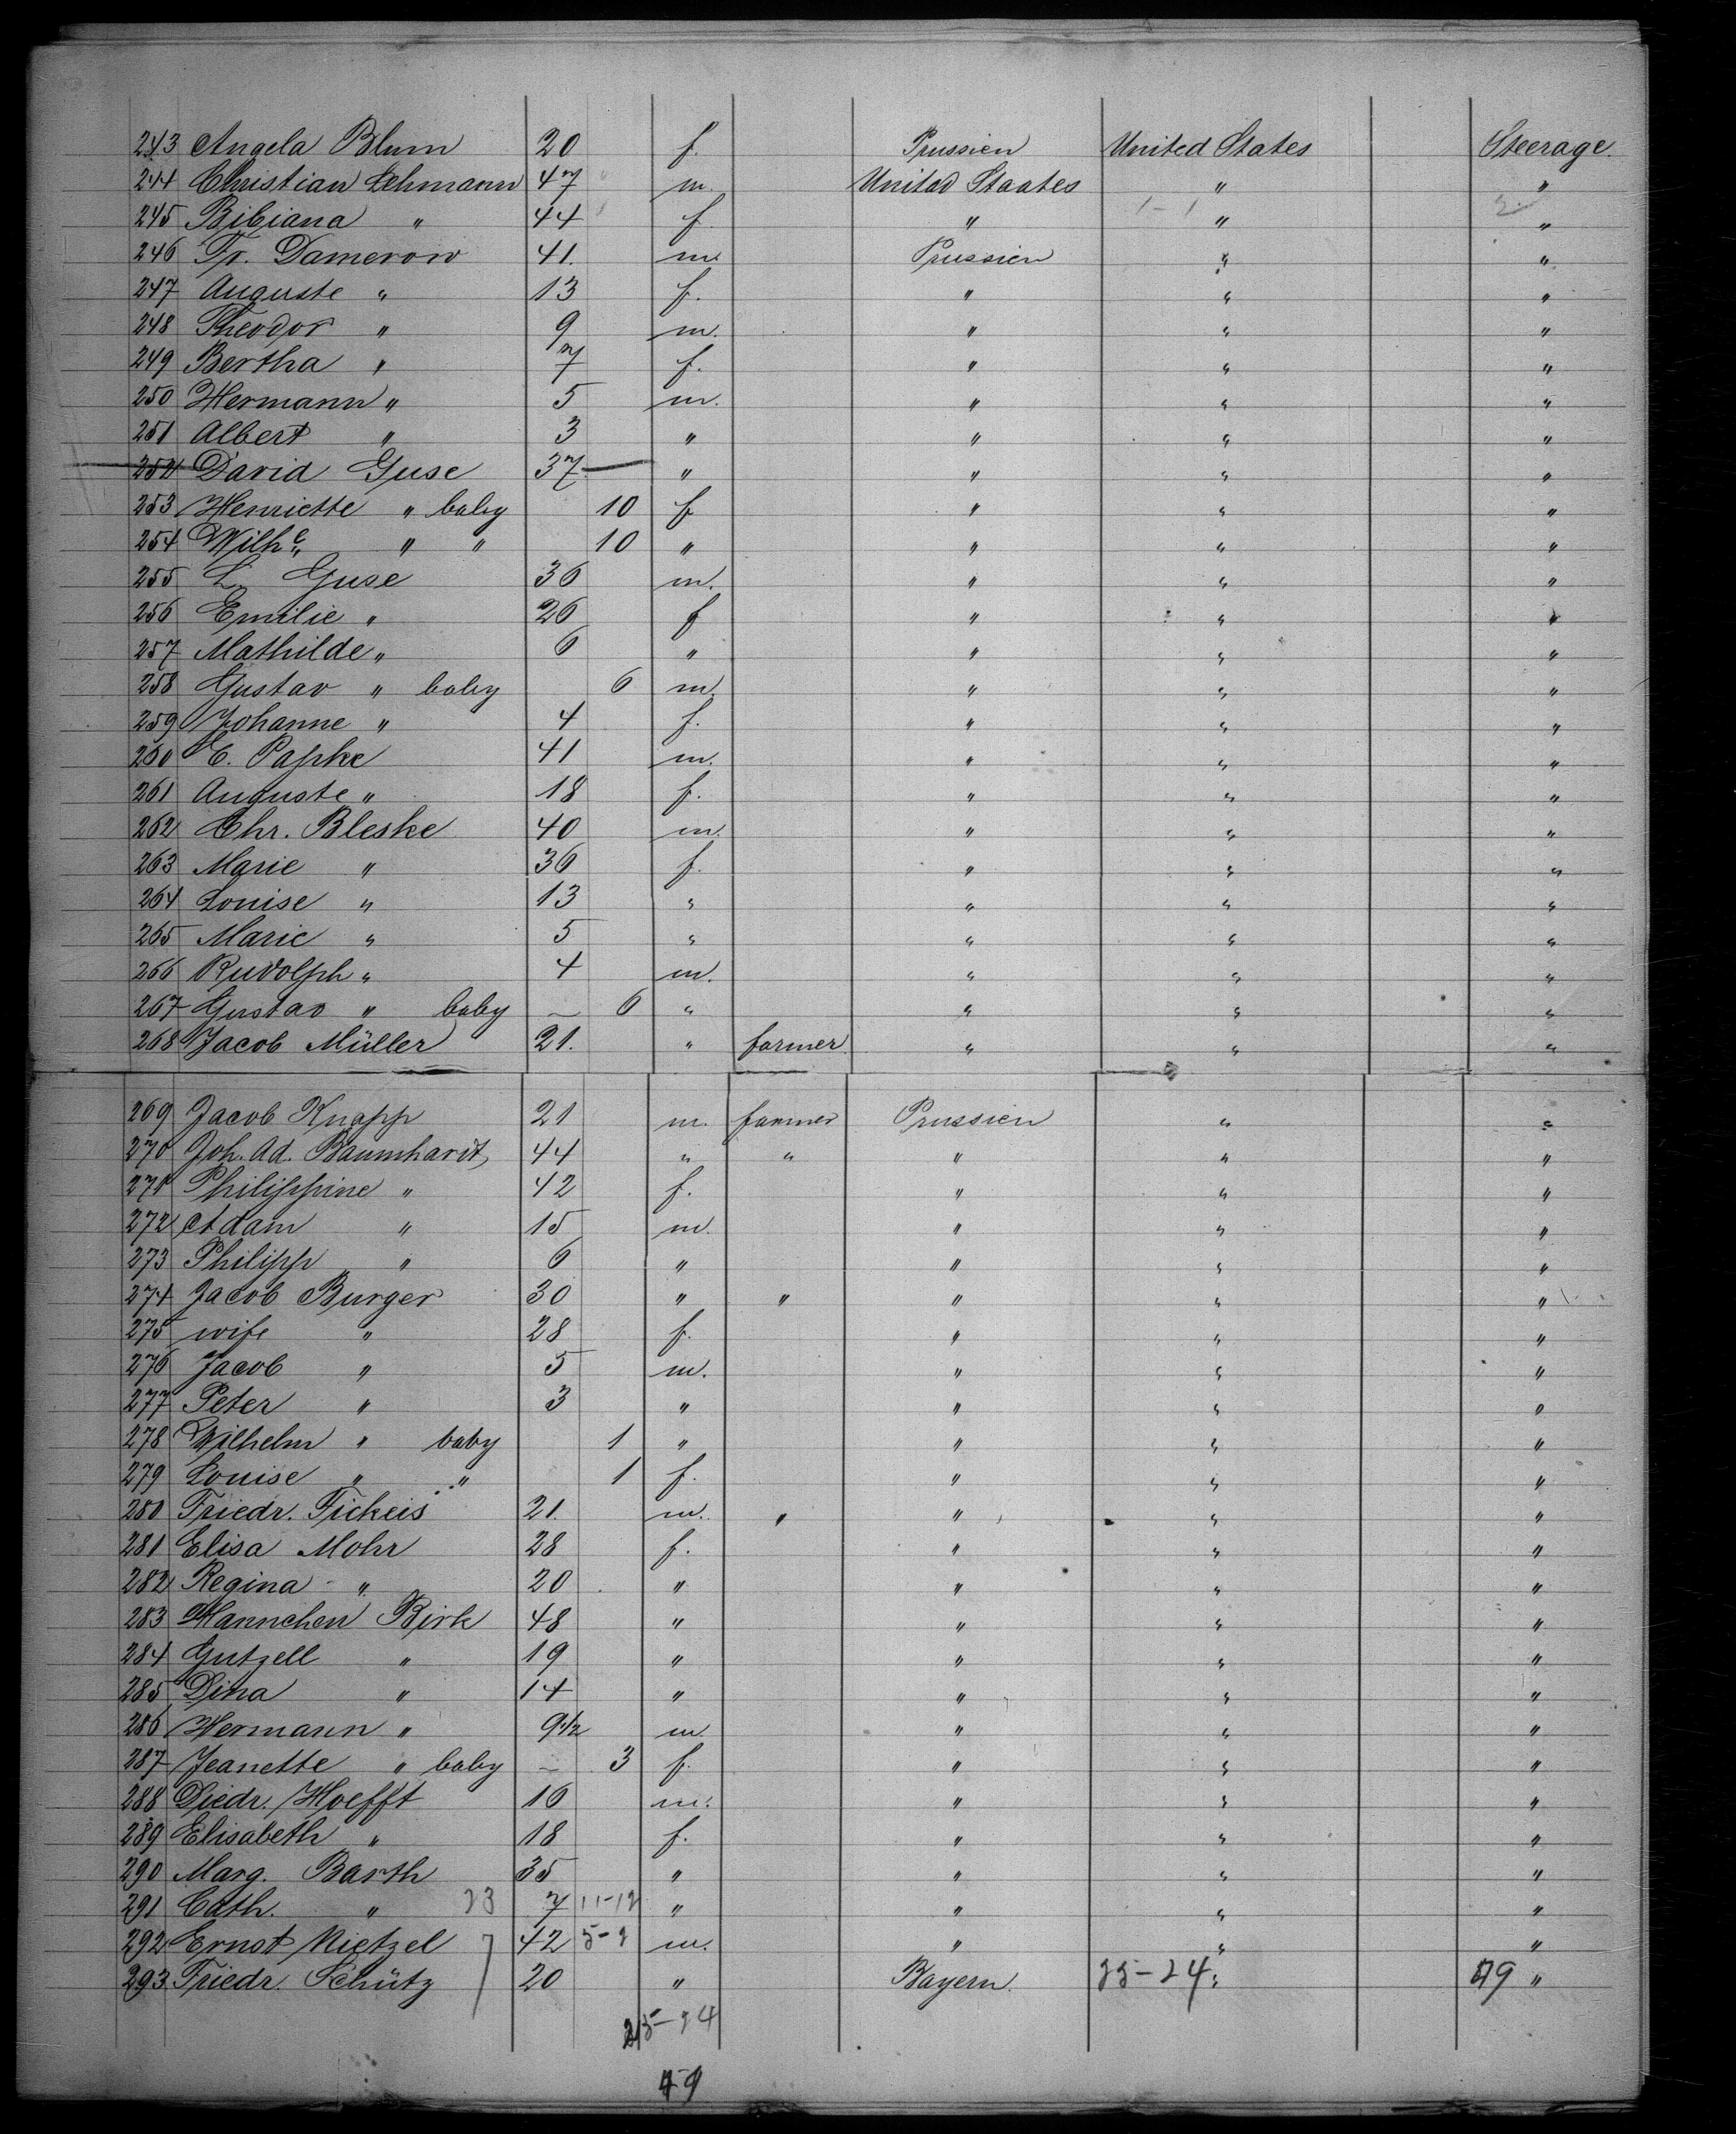 243 Angela Blum 20 f. Prussien United States Steerage.
244 Christian Lehmann 47 m. United Staates " "
245 Bibiana " 44 f " 1-1 " 2 "
246 Fr. Damerow 41. m. Prussien " "
247 Auguste " 13 f. " " "
248 Theodor " 9 m. " " "
249 Bertha " 7 f. " " "
250 Hermann " 5 m. " " "
251 Albert " 3 " " " "
252 David Guse 37 " " " "
253 Henriette " baby 10 f " " "
254 Wilhe " " 10 " " " "
255 L. Guse 36 m. " " "
256 Emilie " 26 f " " "
257 Mathilde " 6 " " " "
258 Gustav " baby 6 m. " " "
259 Johanne " 4 f. " " "
260 E. Papke 41 m. " " "
261 Auguste " 18 f. " " "
262 Chr. Bleske 40 m. " " "
263 Marie " 36 f. " " "
264 Louise " 13 " " " "
265 Marie " 5 " " " "
266 Rudolph " 4 m. " " "
267 Gustav " baby – 6 " " " "
268 Jacob Müller 21. " farmer " " "
269 Jacob Knapp 21 m. farmer Prussien " "
270 Joh. Ad. Baumhardt, 44 " " " " "
271 Philippine " 42 f. " " "
272 Adam " 15 m. " " "
273 Philipp " 6 " " " "
274 Jacob Burger 30 " " " " "
275 wife " 28 f. " " "
276 Jacob " 5 m. " " "
277 Peter " 3 " " " "
278 Wilhelm " baby 1 " " " "
279 Louise " " 1 f. " " "
280 Friedr. Fickeis 21. m. " " " "
281 Elisa Mohr 28 f. " " "
282 Regina " 20 " " " "
283 Hannchen Birk 48 " " " "
284 Gutzell " 19 " " " "
285 Dina " 14 " " " "
286 Hermann " 9 1/2 m. " " "
287 Jeanette " baby – 3 f. " " "
288 Diedr. Hoefft 16 m. " " "
289 Elisabeth " 18 f. " " "
290 Marg. Barth 35 " " " "
291 Cath. " 7 11-12 " " " "
292 Ernst Nietzel 42 m. " " "
293 Friedr. Schütz 20 " Bayern. 25-24 " 49 "
25-24
49